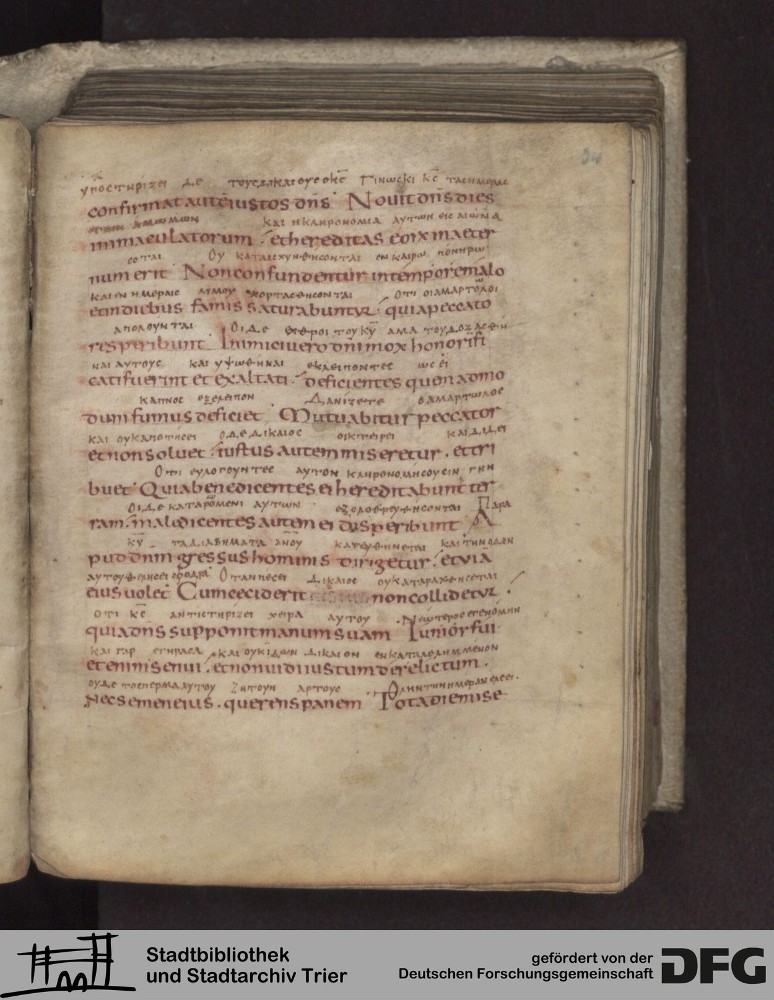 34
ὑποστηριζει δε τους δικαιους ο κ̅ς̅ Γινωσκι κ̅ς̅ τας ημερας
confirmat autē iustos dn̄s Nouit dn̄s dies
αμωμων και η κληρονομια αυτων εις αιωνα
inmaculatorum . et hereditas eorx inaeter
εσται Ου καταισχυνθησονται εν καιρω πονηρω
num erit Non confundentur intempore malo
και ιν ημεραις λιμου χορτασθησονται οτι οι αμαρτωλοι
et in diebus famis saturabuntur . quia peccato
απολουνται Οι δε εχθροι του κ̅υ̅ αμα του δοξασθην
res peribunt . Inimici uero dn̄i mox honorifi
και αυτους και υψωθηναι εκλειποντες ως ει
cati fuerint et exaltati . deficientes quemadmo
καπνος εξελειπον Δανιζετε ο αμαρτωλος
dum fumus deficiet . Mutuabitur peccator
και ουκ αποτισει ο δε δικαιος οικτειρει και διδει
et non soluet . iustus autem miseretur . et tri
Οτι ευλογουντες αυτον κληρονομησουσιν γην
buet Quia benedicentes ei hereditabunt ter
Οι δε καταρομενι αυτων εξολοθρευθησονται Παρα
ram . maledicentes autem ei disperibunt A
κ̅υ̅ τα διαβηματα αν̅ου κατευθηνεται και την οδον
pud dnm gressus hominis dirigetur . et uiā
αυτου θελησει σφοδρα Οταν πεσει δικαιος ου καταραχθησεται
eius uolet Cum ceciderit non collidetur .
οτι κ̅ς̅ αντιστηριζει χειρα αυτου Νεωτερος εγενομην
quia dn̄s supponit manum suam Iunior fui
και γαρ εγηρασα και ουκ ιδων δικαιον ενκαταλελημμενον
etenim senui . et non uidi iustum derelictum .
ουδε το σπερμα αυτου ζητουν αρτους Ολην την ημεραν ελεει .
Nec semen eius . querens panem Tota die mise
Stadtbibliothek
und Stadtarchiv Trier
gefördert von der
Deutschen Forschungsgemeinschaft
DFG